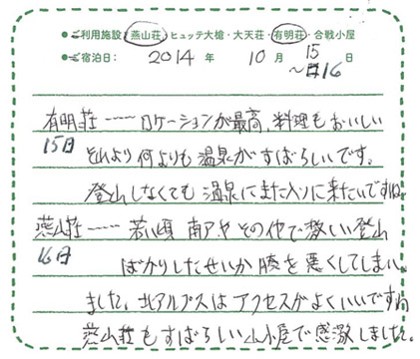 ●ご利用施設 燕山荘・ヒュッテ大槍・大天荘・有明荘・合戦小屋
●ご宿泊日: 2014年 10月 15日
〜16
有明荘……ロケーションが最高、料理もおいしい
15日 それより何よりも温泉がすばらしいです。
登山しなくても温泉にまた入りに来たいですね。
燕山荘……若い頃 南アルプスその他で激しい登山
16日 ばかりしたせいか膝を悪くしてしまい
ました。北アルプスはアクセスがよくいいですね
燕山荘もすばらしい山小屋で感激しました。